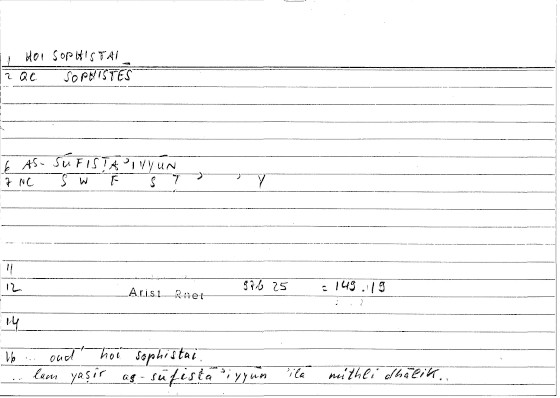 1 HOI SOPHISTAI
2 QC SOPHISTES
6 AS-SŪFISṬĀʾIYYŪN
7 NC S W F S Ṭ ʾ ʾ Y
11
12 Arist Rhet 97b 25 = 149.19
14
16 .. oud' hoi sophistai.
.. lam yaṣir as-sūfisṭāʾiyyūn ʾilā mithli dhālik..